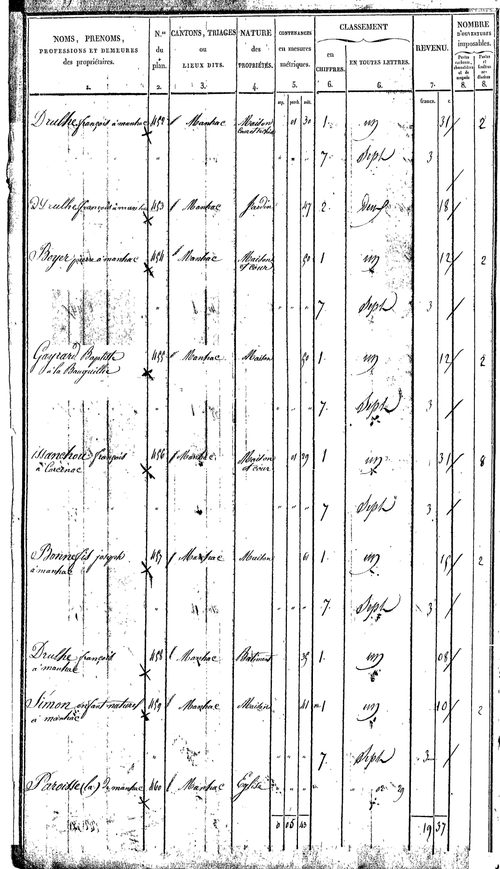 NOMS, PRENOMS, PROFESSIONS ET DEMEURES des propriétaires. N.os du plan. CANTONS, TRIAGES ou LIEUX DITS. NATURE des PROPRIÉTÉS. CONTENANCES en mesures métriques. CLASSEMENT en CHIFFRES. EN TOUTES LETTRES. REVENU. NOMBRE D'OUVERTURES imposables.
1. 2. 3. 4. 5. 6. 6. 7. 8. 8.
arp. perch. mèt. francs. c.
Drulhe françois à manhac 1452 Manhac Maison 01 30 1 un 31 2
7 Sept 3
D. Drulhe françois à manhac 1453 Manhac Jardin 47 2 Deux 18
Boyer pierre à manhac 1454 Manhac Maison et cour 50 1 un 12 2
7 Sept 3
Gayrard Baptiste 1455 Manhac Maison 50 1 un 12 2
7 Sept 3
issanchou françois 1456 Manhac Maison et cour 01 29 1 un 31 8
7 Sept 3
Bonnefis joseph à manhac 1457 Manhac Maison 61 1 un 15 2
7 Sept 3
Drulhe françois à manhac 1458 Manhac Bâtiment 35 1 un 08
Simon enfant naturel à manhac 1459 Manhac Maison 41 1 un 10 2
7 Sept 3
Paroisse (la) De manhac 1460 Manhac Eglise
19 37